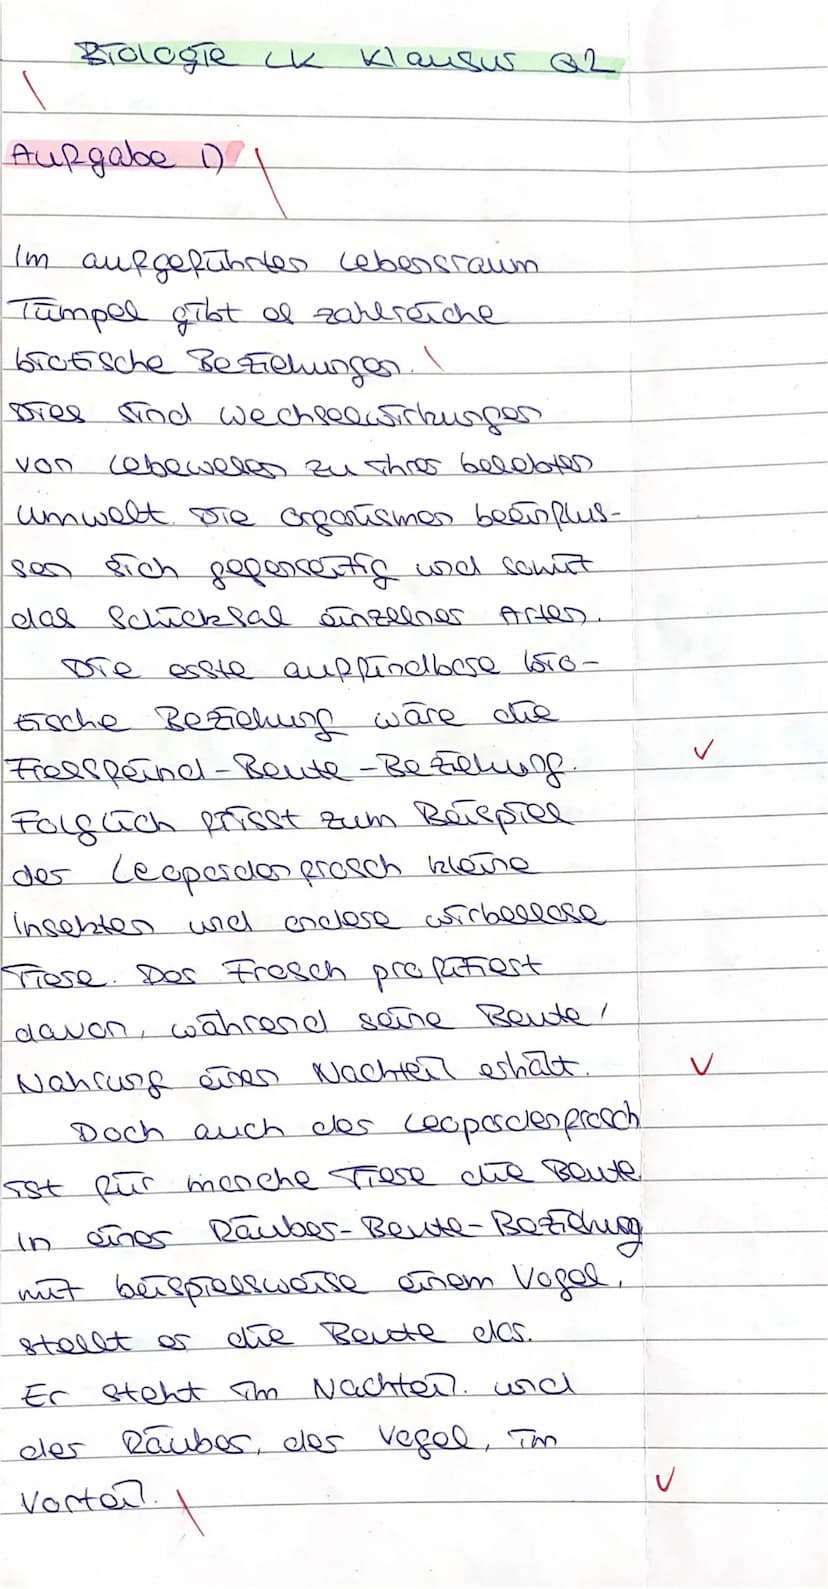 Biologie LK Klausur Q2
Aufgabe 1)
Im aufgeführten Lebensraum
Tümpel gibt es zahlreiche
biotische Beziehungen.
Dies sind Wechselwirkungen
von Lebewesen zu ihrer belebten
Umwelt. Die Organismen beeinflus-
sen sich gegenseitig und somit
das Schicksal einzelner Arten.
Die erste auffindbare bio-
tische Beziehung wäre die
Fressfeind-Beute-Beziehung.
Folglich frisst zum Beispiel
der Leopardenfrosch kleine
Insekten und andere wirbellose
Tiere. Der Frosch profitiert
davon, während seine Beute/
Nahrung einen Nachteil erhält.
Doch auch der Leopardenfrosch
ist für manche Tiere die Beute.
In einer Räuber-Beute-Beziehung
mit beispielsweise einem Vogel,
stellt er die Beute dar.
Er steht im Nachteil und
der Räuber, der Vogel, im
Vorteil.